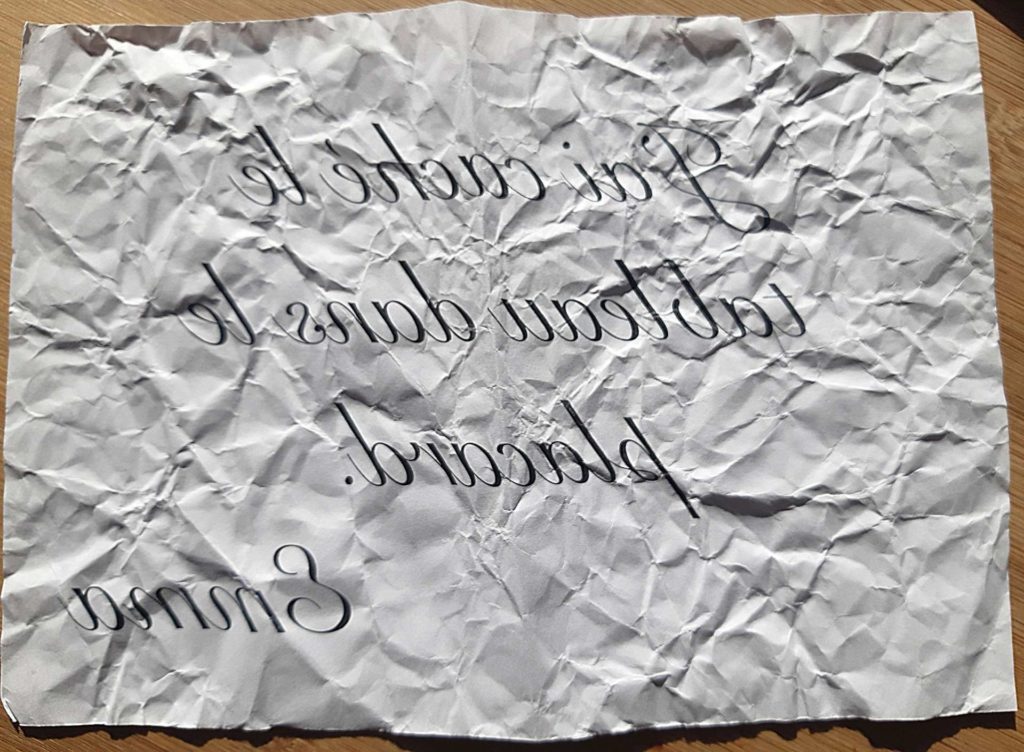 J'ai caché le
tableau dans le
placard.
Emma